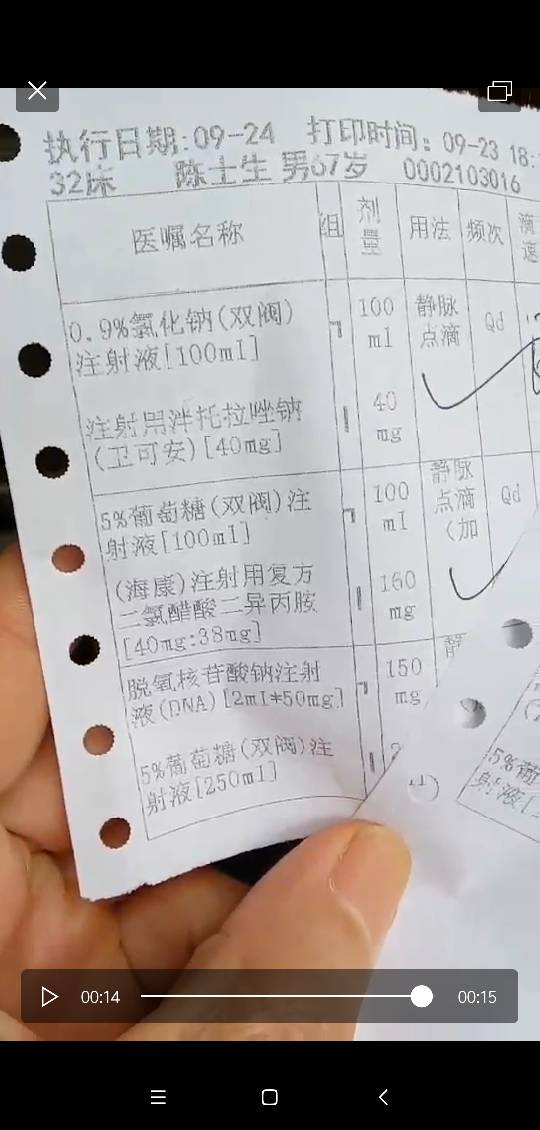 执行日期:09-24 打印时间:09-23 18:
32床 陈士生 男67岁 0002103016
医嘱名称 组 剂量 用法 频次 滴速
0.9%氯化钠(双阀) 100 静脉 Qd
注射液[100ml] ml 点滴
注射用泮托拉唑钠 40
(卫可安)[40mg] mg
静脉
5%葡萄糖(双阀)注 100 点滴 Qd
射液[100ml] ml (加
(海康)注射用复方 160
二氯醋酸二异丙胺 mg
[40mg:38mg]
脱氧核苷酸钠注射 150 静
液(DNA)[2ml*50mg] mg
5%葡萄糖(双阀)注 2
射液[250ml]
5%葡
射液[
00:14 00:15